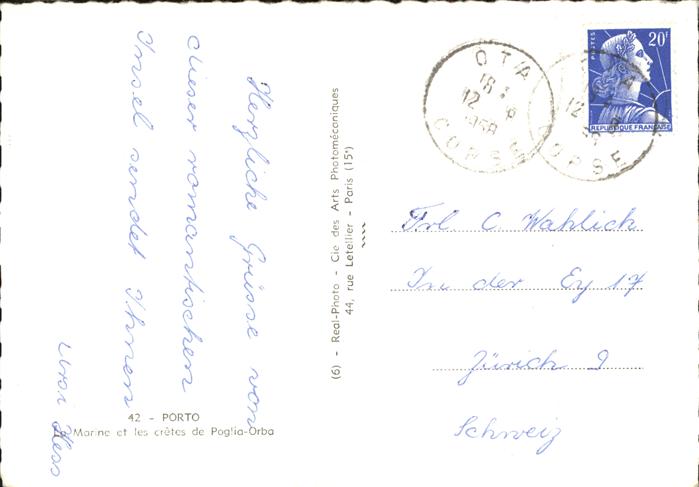 Herzliche Grüsse von
dieser romantischen
Insel sendet Ihnen
Hess
42 - PORTO
Marine et les crêtes de Poglia-Orba
(6) - Real-Photo - Cie des Arts Photomécaniques
44, rue Letellier - Paris (15e)
OTA
18
12
1958
CORSE
POSTES
20F
REPUBLIQUE FRANÇAISE
12
CORSE
Frl C. Wahlich
In der Ey 17
Zürich 9
Schweiz